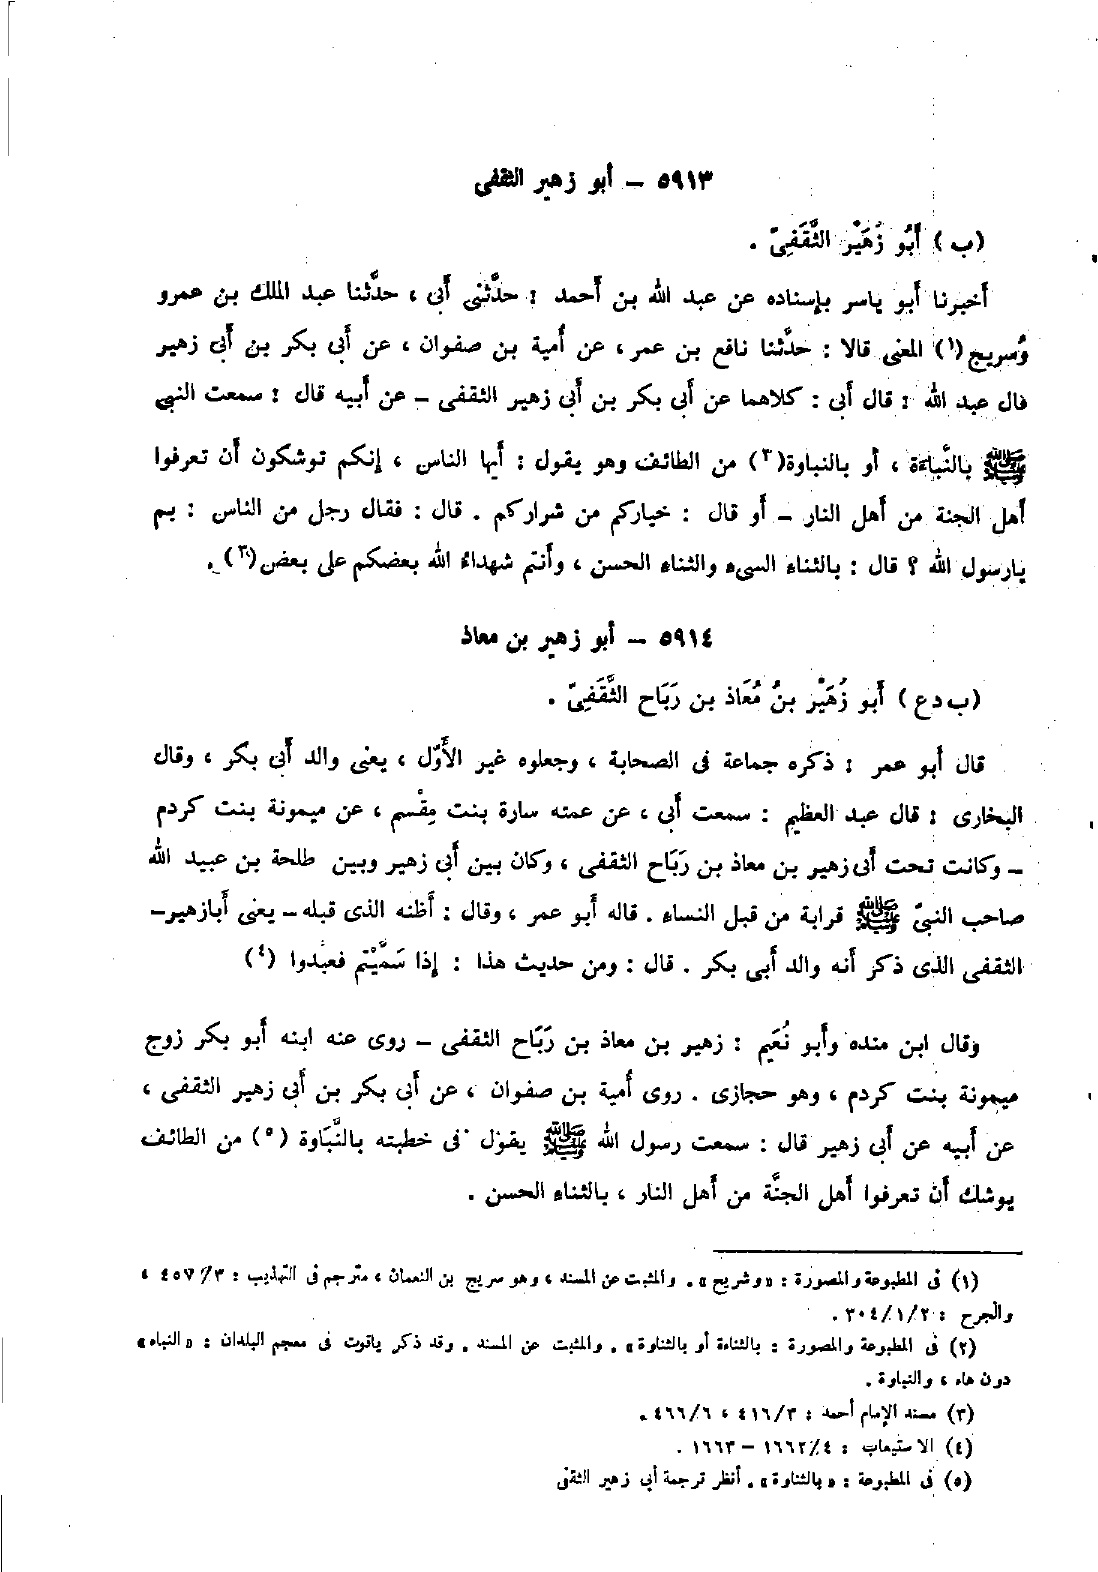 ٥٩١٣ – أبو زهير الثقفى
(ب) أَبُو زُهَيْر الثَّقَفِىّ .
أخبرنا أبو ياسر بإسناده عن عبد الله بن أحمد : حدَّثنى أبى ، حدَّثنا عبد الملك بن عمرو
وسُريج(١) المعنى قالا : حدَّثنا نافع بن عمر ، عن أمية بن صفوان ، عن أبى بكر بن أبى زهير
قال عبد الله : قال أبى : كلاهما عن أبى بكر بن أبى زهير الثقفى – عن أبيه قال : سمعت النبى
ﷺ بالنَّباءة ، أو بالنباوة(٢) من الطائف وهو يقول : أيها الناس ، إنكم توشكون أن تعرفوا
أهل الجنة من أهل النار – أو قال : خياركم من شراركم . قال : فقال رجل من الناس : بم
يارسول الله ؟ قال : بالثناء السىء والثناء الحسن ، وأنتم شهداء الله بعضكم على بعض(٣) .
٥٩١٤ – أبو زهير بن معاذ
(ب دع) أَبو زُهَيْر بنُ مُعَاذ بن رَبَاح الثَّقَفِىّ .
قال أبو عمر : ذكره جماعة فى الصحابة ، وجعلوه غير الأَوّل ، يعنى والد أبى بكر ، وقال
البخارى : قال عبد العظيم : سمعت أبى ، عن عمته سارة بنت مِقْسم ، عن ميمونة بنت كردم
– وكانت تحت أبى زهير بن معاذ بن رَبَاح الثقفى ، وكان بين أبى زهير وبين طلحة بن عبيد الله
صاحب النبىّ ﷺ قرابة من قبل النساء . قاله أبو عمر ، وقال : أظنه الذى قبله – يعنى أبازهير–
الثقفى الذى ذكر أنه والد أبى بكر . قال : ومن حديث هذا : إذا سَمَّيْتم فعبِّدوا (٤)
وقال ابن منده وأبو نُعَيم : زهير بن معاذ بن رَبَاح الثقفى – روى عنه ابنه أبو بكر زوج
ميمونة بنت كردم ، وهو حجازى . روى أمية بن صفوان ، عن أبى بكر بن أبى زهير الثقفى ،
عن أبيه عن أبى زهير قال : سمعت رسول الله ﷺ يقول فى خطبته بالنَّبَاوة (٥) من الطائف
يوشك أن تعرفوا أهل الجنَّة من أهل النار ، بالثناء الحسن .
(١) فى المطبوعة والمصورة : «وشريح» . والمثبت عن المسند ، وهو سريج بن النعمان ، مترجم فى التهذيب : ٣/ ٤٥٧ ،
والجرح : ٢/ ١/ ٣٠٤ .
(٢) فى المطبوعة والمصورة : بالثناءة أو بالثناوة» . والمثبت عن المسند . وقد ذكر ياقوت فى معجم البلدان : «النباء»
دون هاء ، والنباوة .
(٣) مسند الإمام أحمد : ٣/ ٤١٦ ، ٦/ ٤٦٦ .
(٤) الاستيعاب : ٤/ ١٦٦٢ – ١٦٦٣ .
(٥) فى المطبوعة : «بالثناوة» . أنظر ترجمة أبى زهير الثقفى